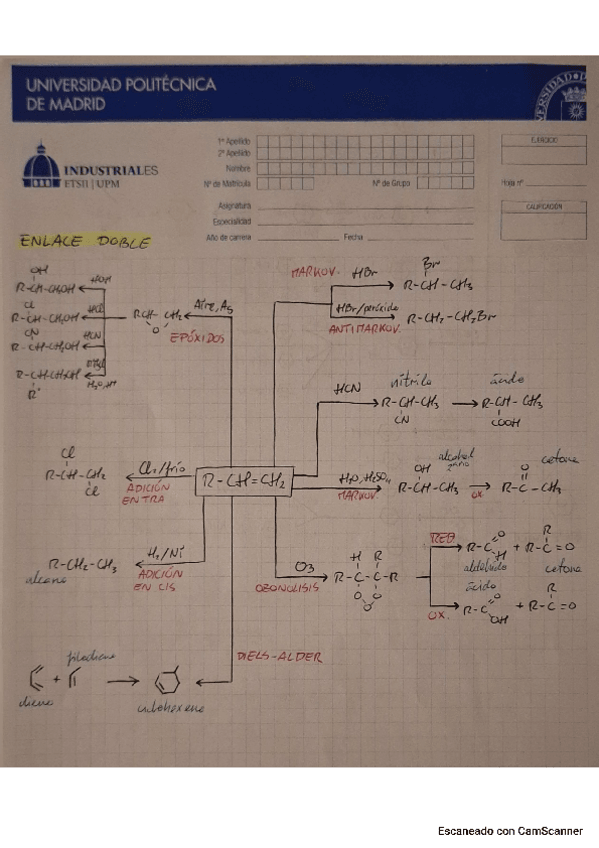 UNIVERSIDAD POLITÉCNICA
DE MADRID
INDUSTRIALES
ETSII | UPM
1º Apellido
2º Apellido
Nombre
Nº de Matrícula
Nº de Grupo
Asignatura
Especialidad
Año de carrera
Fecha
EJERCICIO
Hoja nº
CALIFICACIÓN
ENLACE DOBLE
OH
R-CH-CH2OH
HOH
Cl
R-CH-CH2OH
HCl
CN
R-CH-CH2OH
HCN
R-CH-CH2OH
R'
H2O, H+
R CH-CH2
O
Aire, Ag
EPÓXIDOS
MARKOV. HBr
Br
R-CH-CH3
HBr/peróxido
ANTIMARKOV.
R-CH2-CH2Br
HCN
nitrilo
R-CH-CH3
CN
ácido
R-CH-CH3
COOH
R-CH=CH2
Cl2/frío
ADICIÓN
EN TRA
Cl
R-CH-CH2
Cl
H2O, H2SO4
MARKOV.
alcohol
OH
R-CH-CH3
OX.
cetona
O
R-C-CH3
H2/Ni
ADICIÓN
EN CIS
R-CH2-CH3
alcano
O3
OZONOLISIS
H R
R-C-C-R
O O
O
RED.
R-C O
H
aldehído
+ R-C=O
R
cetona
OX.
ácido
R-C O
OH
+ R-C=O
R
DIELS-ALDER
filodieno
+
dieno
ciclohexeno
Escaneado con CamScanner